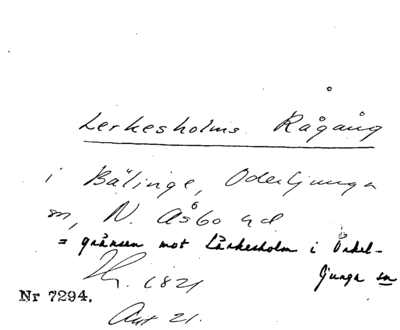 Lerkesholms Rågång
i Bälinge, Oderljunga
sn, N. Åsbo hd
= gränsen mot Lärkesholm i Örkel-
ljunga sn
1821
Nr 7294.
Akt 21.